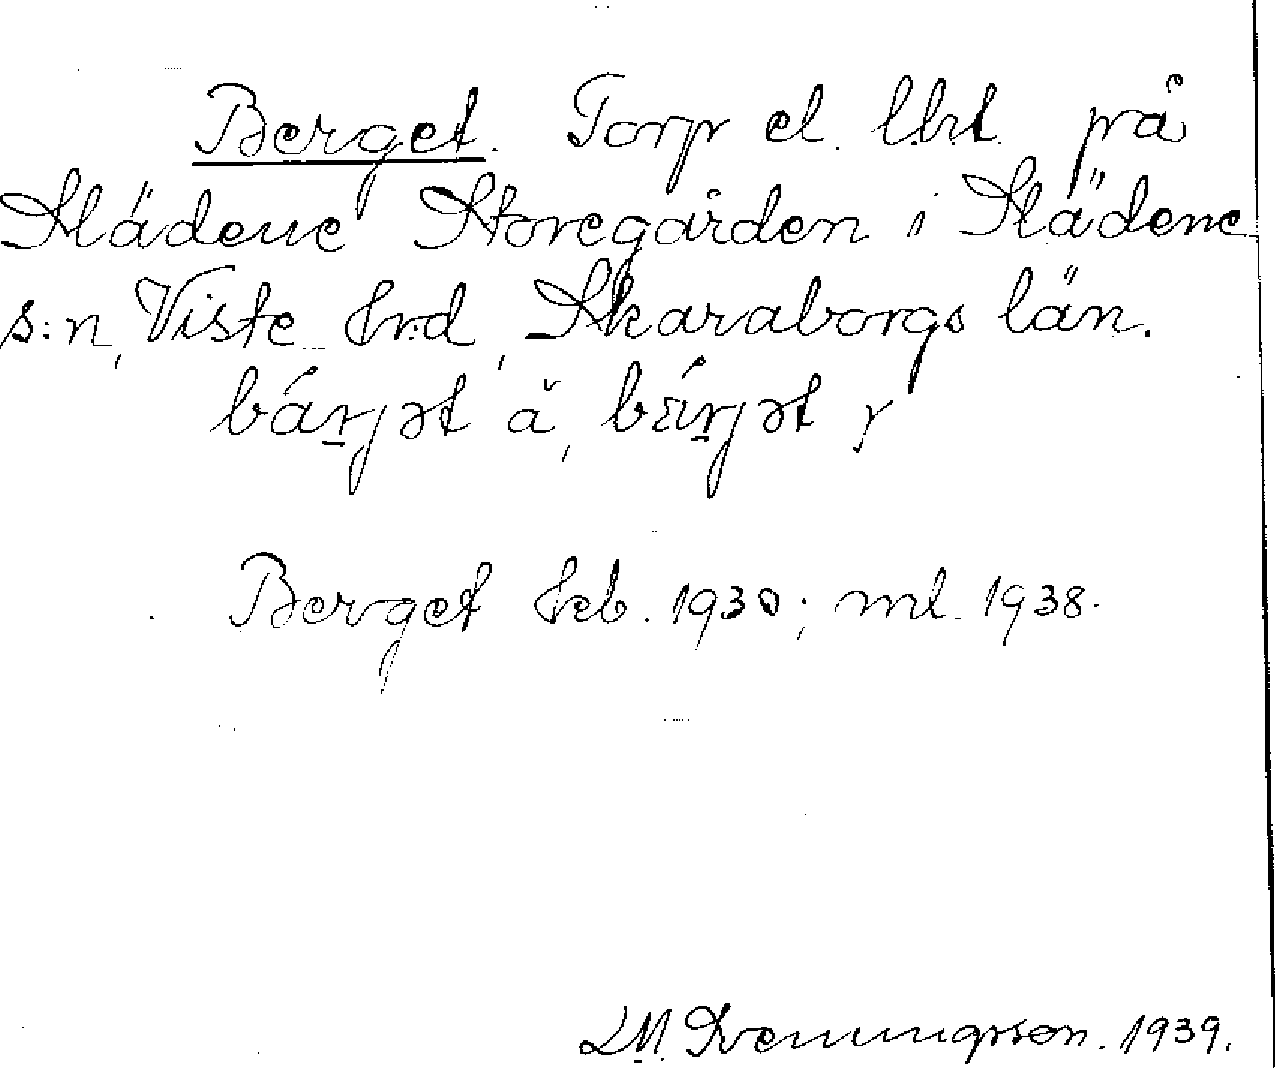 Berget. Torp el. lht. på
Slädene Storegården i Slädene
s:n, Viste hrd, Skaraborgs län.
bárjət ǎ, bǽrjət
Berget Jeb. 1930; ml. 1938.
LM. Svenungsson. 1939.